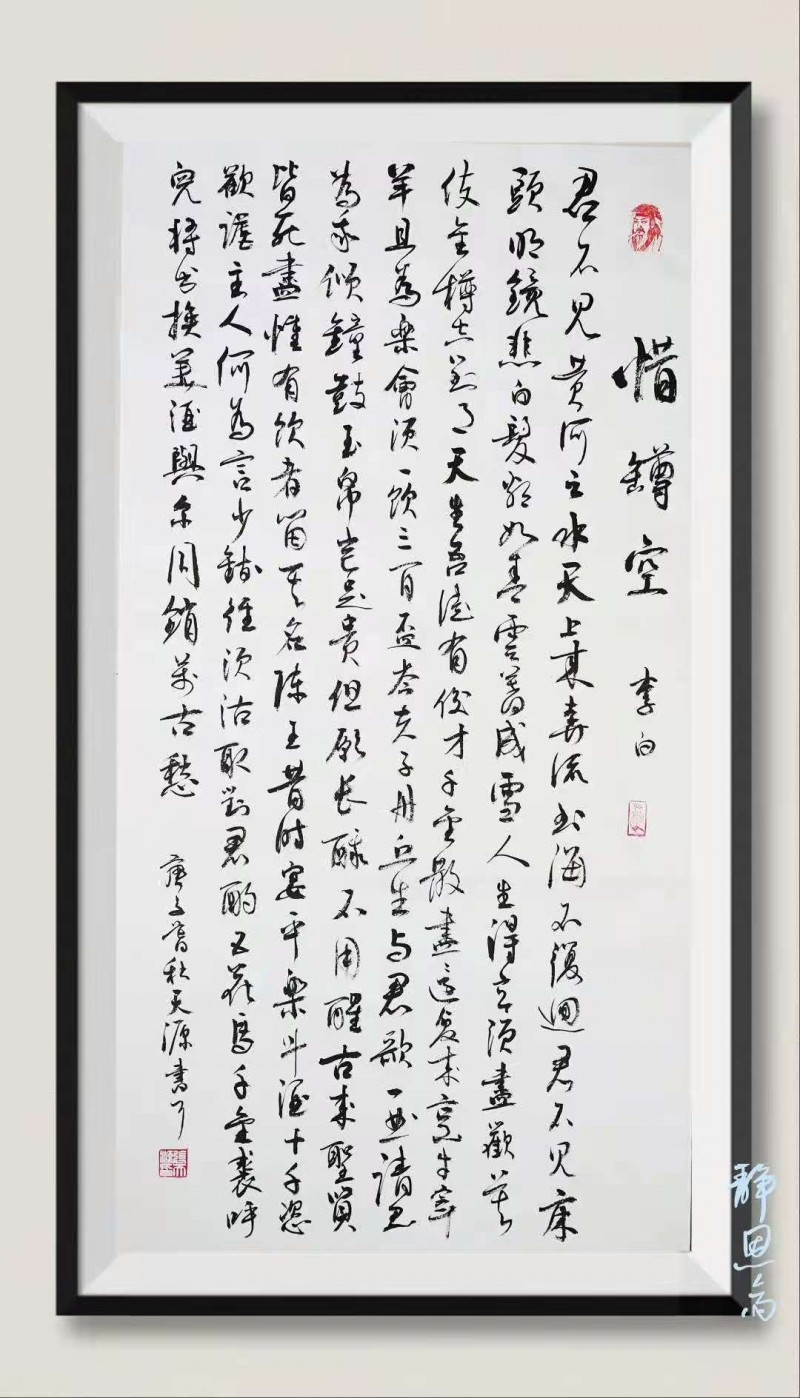 惜鐏空 李白
君不見黄河之水天上來奔流到海不復迴君不見床
頭明鏡悲白髮朝如青雲暮成雪人生得意須盡歡莫
使金樽空對月天生吾徒有俊才千金散盡還復來烹牛宰
羊且為樂會須一飲三百盃岑夫子丹丘生與君歌一曲請君
為我傾鐘鼓玉帛豈足貴但願長醉不用醒古來聖賢
皆死盡惟有飲者留其名陳王昔時宴平樂斗酒十千恣
歡謔主人何為言少錢徑須沽取對君酌五花馬千金裘呼
兒將出換美酒與尔同銷萬古愁 庚子暮秋天源書